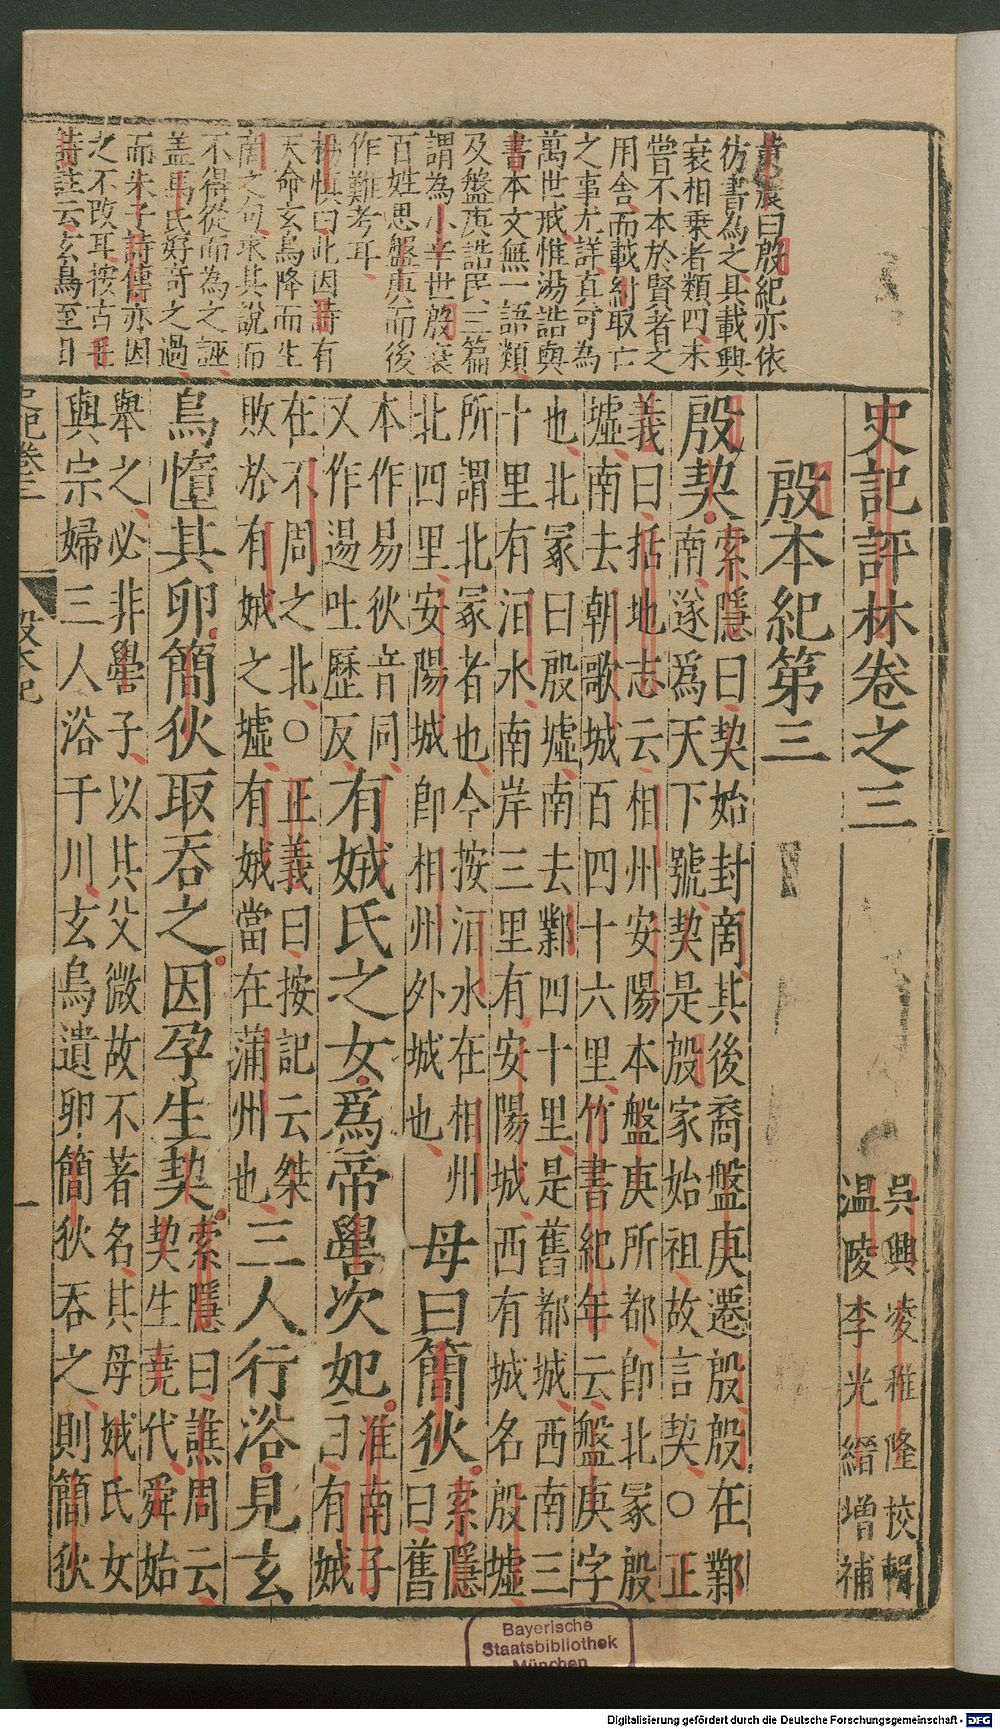 黄震曰殷紀亦依
彷書為之具載興
衰相乗者類四未
嘗不本於賢者之
用舍而載紂取亡
之事尤詳真可為
萬世戒惟湯誥與
書本文無一語類
及盤庚誥民三篇
謂為小辛世殷衰
百姓思盤庚而後
作難考耳
楊慎曰此因詩有
天命玄鳥降而生
商之句求其說而
不得從而為之誣
盖馬氏好奇之過
而朱子詩傳亦因
之不改耳按古毛
詩註云玄鳥至日
史記評林卷之三
吳興凌稚隆校輯
温陵李光縉增補
殷本紀第三
殷契
索隱曰契始封商其後裔盤庚遷殷殷在鄴
南遂爲天下號契是殷家始祖故言契○正
義曰括地志云相州安陽本盤庚所都即北冢殷
墟南去朝歌城百四十六里竹書紀年云盤庚字
也北冢曰殷墟南去鄴四十里是舊都城西南三
十里有洹水南岸三里有安陽城西有城名殷墟
所謂北冢者也今按洹水在相州
北四里安陽城即相州外城也
母曰簡狄
索隱
曰舊
本作易狄音同
又作逷吐歷反
有娀氏之女爲帝嚳次妃
淮南子
曰有娀
在不周之北○正義曰按記云桀
敗於有娀之墟有娀當在蒲州也
三人行浴見玄
鳥墮其卵簡狄取吞之因孕生契
索隱曰譙周云
契生堯代舜始
舉之必非嚳子以其父微故不著名其母娀氏女
與宗婦三人浴于川玄鳥遺卵簡狄吞之則簡狄
殷本紀
一
Bayerische
Staatsbibliothek
München
Digitalisierung gefördert durch die Deutsche Forschungsgemeinschaft - DFG